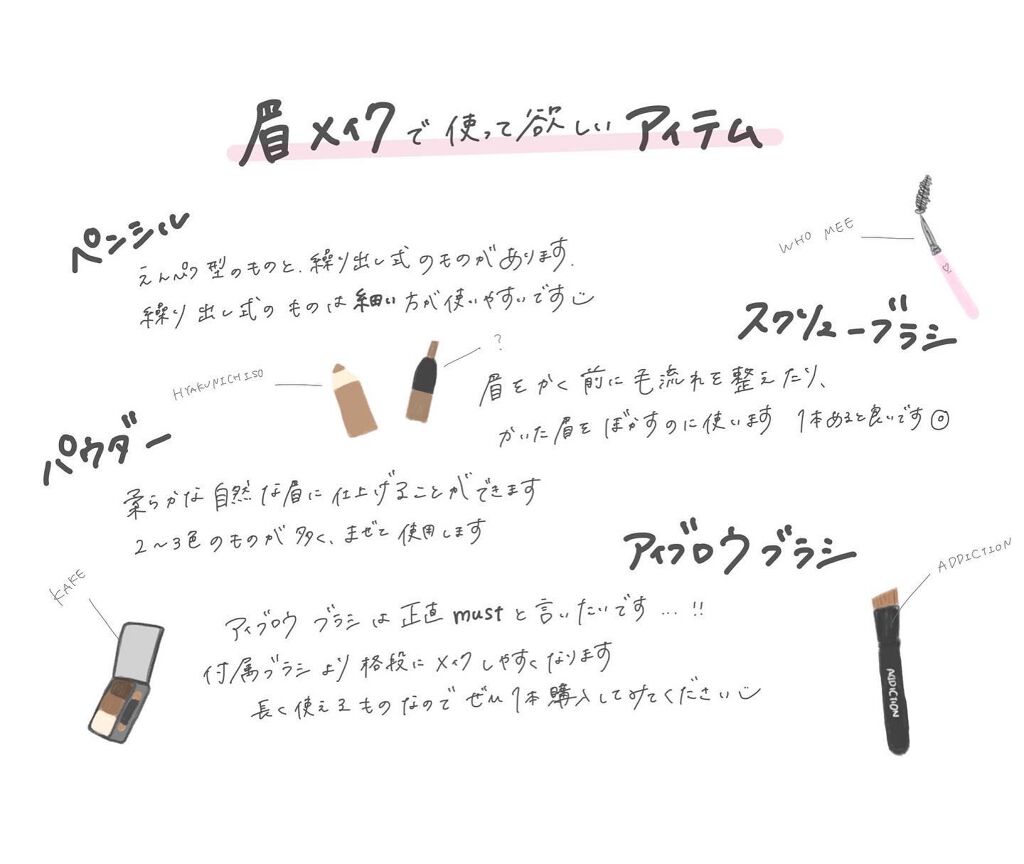 眉メイクで使って欲しいアイテム
ペンシル
えんぴつ型のものと、繰り出し式のものがあります.
繰り出し式のものは細い方が使いやすいです
WHO MEE
スクリューブラシ
眉をかく前に毛流れを整えたり、
かいた眉をぼかすのに使います 1本あると良いです◎
HYAKUNICHISO
?
パウダー
柔らかな自然な眉に仕上げることができます
2〜3色のものが多く、まぜて使用します
KAKE
アイブロウブラシ
ADDICTION
アイブロウブラシは正直mustと言いたいです...!!
付属ブラシより格段にメイクしやすくなります
長く使えるものなのでぜひ1本購入してみてください
ADDICTION